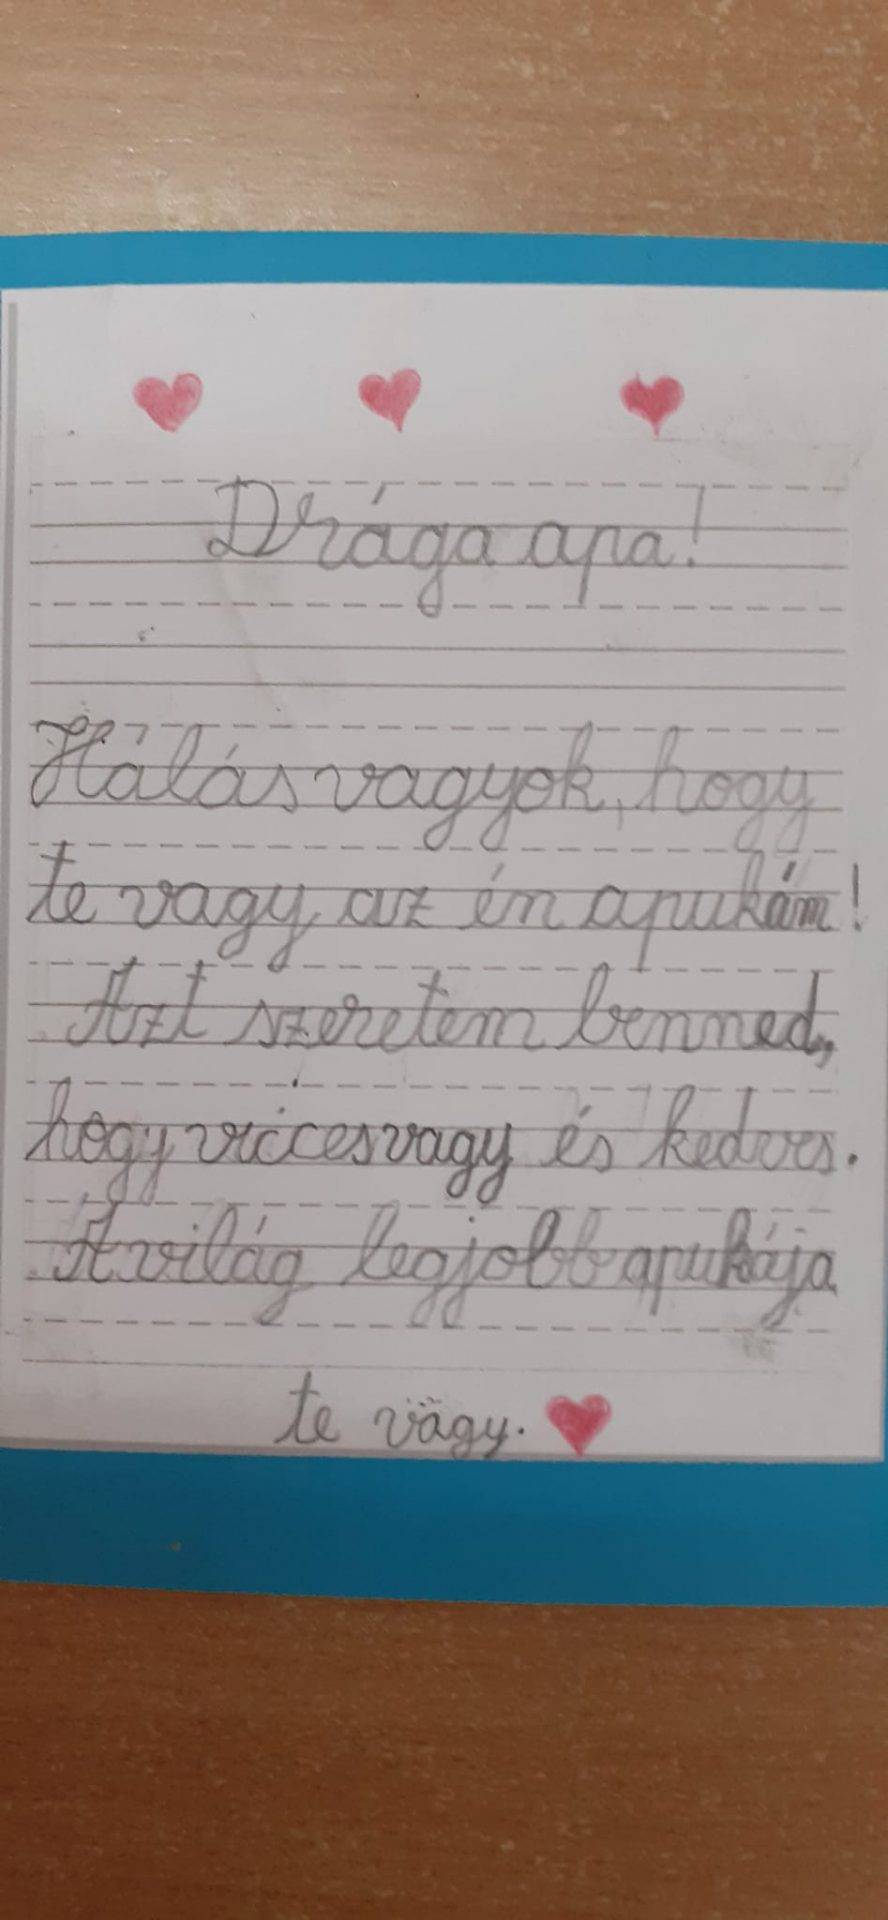 Drága apa!
Hálás vagyok, hogy
te vagy az én apukám!
Azt szeretem benned,
hogy vicces vagy és kedves.
A világ legjobb apukája
te vagy.